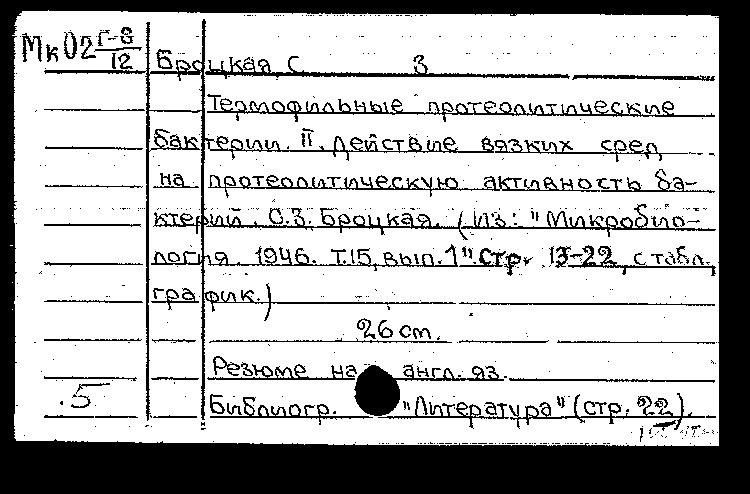 Мк02 Г-8/12
Броцкая, С 3
Термофильные протеолитические
бактерии. II. Действие вязких сред
на протеолитическую активность ба-
ктерий. С.З. Броцкая. (Из: "Микробио-
логия. 1946. Т.15, вып. 1". стр. 13-22, с табл.,
график.)
26 cm.
Резюме на англ. яз.
Библиогр. "Литература" (стр. 22).
.5